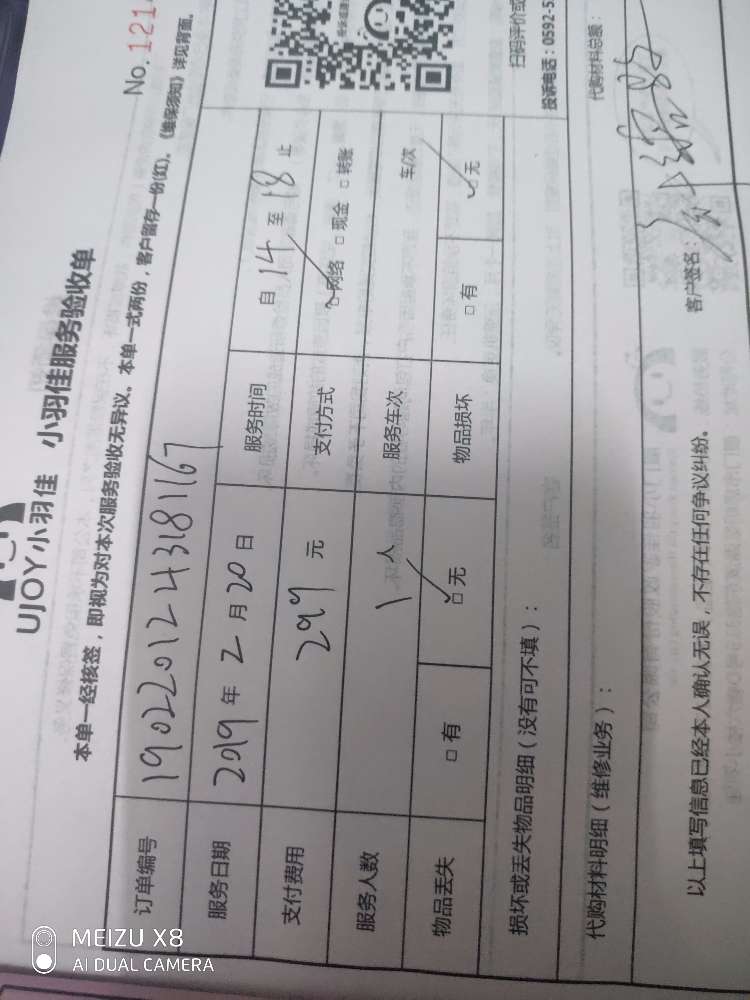 UJOY小羽佳 小羽佳服务验收单
No.121
本单一经核签，即视为对本次服务验收无异议。本单一式两份，客户留存一份(红)。《维保须知》详见背面。
订单编号 1902201243181167
服务日期 2019 年 2 月 20 日 服务时间 自 14 至 18 止
支付费用 299 元 支付方式 ☑网络 □现金 □转账
服务人数 1 人 服务车次 车/次
物品丢失 □有 ☑无 物品损坏 □有 ☑无
损坏或丢失物品明细（没有可不填）：
扫码评价或
投诉电话：0592-5
代购材料明细（维修业务）：
代购材料总额：
以上填写信息已经本人确认无误，不存在任何争议纠纷。
客户签名：
MEIZU X8
AI DUAL CAMERA